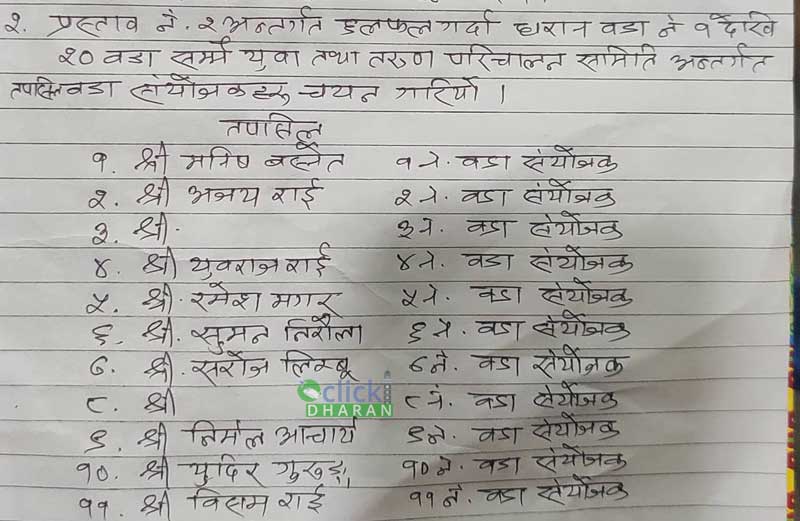 २. प्रस्ताव नं. २ अन्तर्गत छलफल गर्दा धरान वडा नं १ देखि
२० वडा सम्म युवा तथा तरुण परिचालन समिति अन्तर्गत
तपसिल वडा संयोजकहरु चयन गरियो ।
तपसिल
१. श्री मनिष बस्नेत १ नं. वडा संयोजक
२. श्री अजय राई २ नं. वडा संयोजक
३. श्री. ३ नं. वडा संयोजक
४. श्री युवराज राई ४ नं. वडा संयोजक
५. श्री. रमेश मगर ५ नं. वडा संयोजक
६. श्री. सुमन निरौला ६ नं. वडा संयोजक
७. श्री. सरोज लिम्बू ७ नं. वडा संयोजक
click
८. श्री ८ नं. वडा संयोजक
DHARAN
९. श्री निर्मल आचार्य ९ नं. वडा संयोजक
१०. श्री युदिर गुरुङ्ग १० नं. वडा संयोजक
११. श्री राई ११ नं. वडा संयोजक